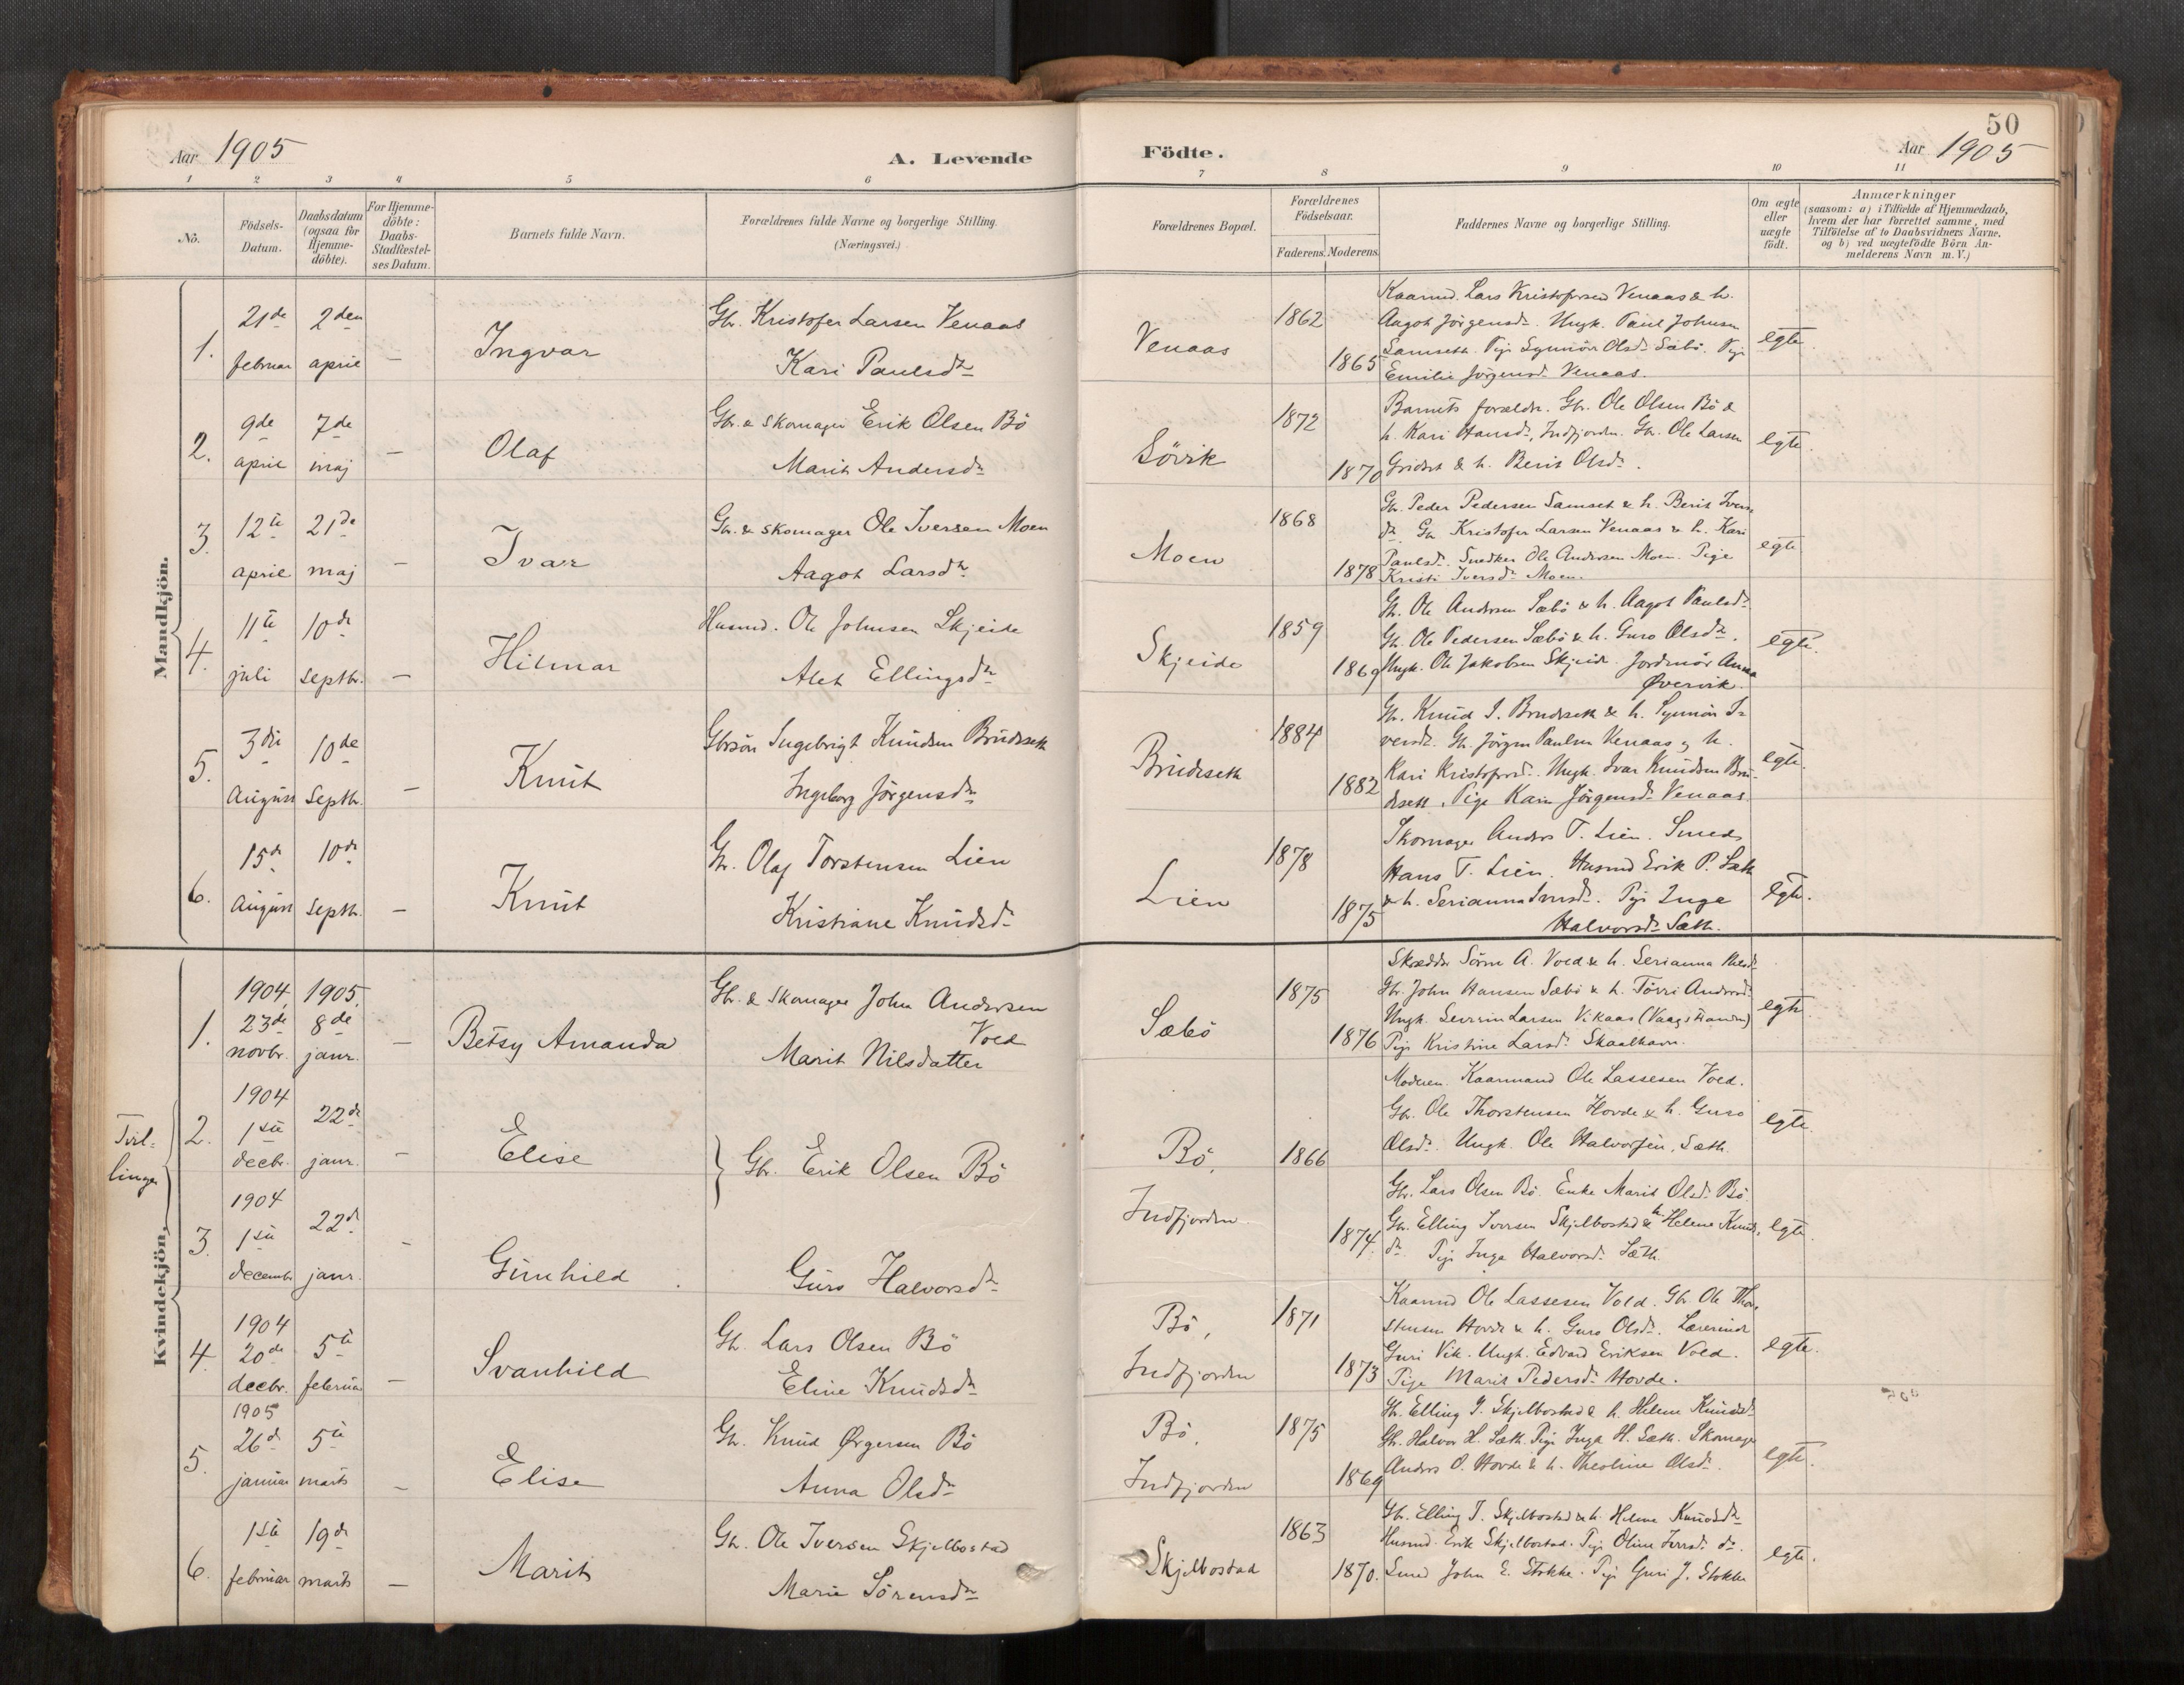 50
Aar 1905
A. Levende
Födte.
Aar 1905
1 2 3 4 5 6 7 8 9 10 11
No.
Födsels-
Datum.
Daabsdatum
(ogsaa for
Hjemme-
döbte).
For Hjemme-
döbte:
Daabs-
Stadfæstel-
ses Datum.
Barnets fulde Navn.
Forældrenes fulde Navne og borgerlige Stilling.
(Næringsvei.)
Forældrenes Bopæl.
Forældrenes
Födselsaar.
Faderens. Moderens.
Faddernes Navne og borgerlige Stilling.
Om ægte
eller
uægte
født.
Anmærkninger
(saasom: a) i Tilfælde af Hjemmedaab,
hvem der har forrettet samme, med
Tilföielse af to Daabsvidners Navne,
og b) ved uægtefödte Börn An-
melderens Navn m. V.)
Mandkjön.
1.
21de
februar
2den
april
–
Ingvar
Gbr. Kristofer Larsen Venaas
Kari Paulsdr
Venaas
1862
1865
Kaarmd. Lars Kristofersen Venaas & h.
Aagot Jörgensdr. Ungk. Paul Johnsen
Samseth. Pige Synnöv Olsdr Sæbö. Pige
Emilie Jörgensdr Venaas.
egte.
2.
9de
april
7de
maj
–
Olaf
Gbr. & skomager Erik Olsen Bö
Marit Andersdr
Sövik
1872
1870
Barnets forældre. Gbr. Ole Olsen Bö &
h. Kari Hansdr, Indfjorden. Gbr. Ole Larsen
Gridset & h. Berit Olsdr.
egte.
3.
12te
april
21de
maj
–
Ivar
Gbr. & skomager Ole Iversen Moen
Aagot Larsdr
Moen
1868
1878
Gbr. Peder Pedersen Samset & h. Berit Ivers-
dr. Gbr Kristofer Larsen Venaas & h. Kari
Paulsdr. Snedker Ole Andersen Moen. Pige
Kristi Iversdr Moen.
egte
4.
11te
juli
10de
septbr.
–
Hilmar
Husmd. Ole Johnsen Skjeide
Alet Ellingsdr
Skjeide
1859
1869
Gbr. Ole Andersen Sæbö & h. Aagot Paulsdr
Gbr. Ole Pedersen Sæbö & h. Guro Olsdr.
Ungk. Ole Jakobsen Skjeide. Jordmor Anna
Øvervik.
egte.
5.
3die
August
10de
Septbr.
–
Knut
Gbrsön Ingebrigt Knudsen Brudeseth
Ingeborg Jörgensdr
Brudeseth
1884
1882
Gbr. Knud I. Brudeseth & h. Synnöv I-
versdr. Gbr. Jörgen Paulsen Venaas og h.
Kari Kristofersdr. Ungk. Ivar Knudsen Bru-
deseth, Pige Karen Jörgensdr Venaas.
egte.
6.
15de
August
10de
Septbr.
–
Knut
Gbr. Olaf Torstensen Lien
Kristiane Knudsdr
Lien
1878
1875
Skomager Anders T. Lien. Smed
Hans T. Lien. Husmd Erik P. Sæth
& h. Serianna. Pige Inga
Halvorsdr Sæth.
egte.
Kvindekjön,
1.
1904,
23de
novbr.
1905.
8de
janr.
–
Betsy Amanda
Gbr. & Skomager John Andersen
Vold
Marit Nilsdatter
Sæbö
1875
1876
Skrædder Sören A. Vold & h. Serianna
Gbr. John Hansen Sæbö & h. Törri Andersdr
Ungk. Severin Larsen Vikaas (Vaagstranden)
Pige Kristine Larsdr Skaalhavn.
egte
Tvil-
linger
2.
1904
1ste
decbr.
22de
janr.
–
Elise
Gbr. Erik Olsen Bö
Bö,
1866
Moderen. Kaarmand Ole Lassesen Vold.
Gbr. Ole Thorstensen Hovde & h. Guro
Olsdr. Ungk. Ole Halvorsen, Sæth.
egte.
3.
1904
1ste
decembr
22de
janr.
–
Gunhild
Guro Halvorsdr
Indfjorden.
1874.
Gbr. Lars Olsen Bö. Enke Marit Olsdr Bö.
Gbr. Elling Iversen Skjelbostad & h. Helene Knuds-
dr. Pige Inga Halvorsdr Sæth.
egte.
4.
1904
20de
decbr.
5te
februar
–
Svanhild
Gbr. Lars Olsen Bö
Eline Knudsdr
Bö,
Indfjorden
1871
1873
Kaarmd Ole Lassesen Vold. Gbr Ole Thor-
stensen Hovde & h. Guro Olsdr. Lærerinde
Guri Vik. Ungk. Edvard Eriksen Vold.
Pige Marit Pedersdr Hovde.
egte.
5.
1905
26de
januar
5te
marts
–
Elise
Gbr. Knud Ørgersen Bö
Anna Olsdr
Bö,
Indfjorden
1875
1869
Gbr. Elling I. Skjelbostad & h. Helene Knudsdr
Gbr. Halvor H. Sæth. Pige Inga H. Sæth. Skomager
Anders O. Hovde & h. Theoline Olsdr.
egte.
6.
1ste
februar
19de
marts
–
Marit
Gbr. Ole Iversen Skjelbostad
Marie Sörensdr
Skjelbostad
1863
1870.
Gbr. Elling I. Skjelbostad & h. Helene Knudsdr
Husmd. Erik Skjelbostad. Pige Oline Iversdr do.
Smed John E. Stokke. Pige Guri J. Stokke
egte.